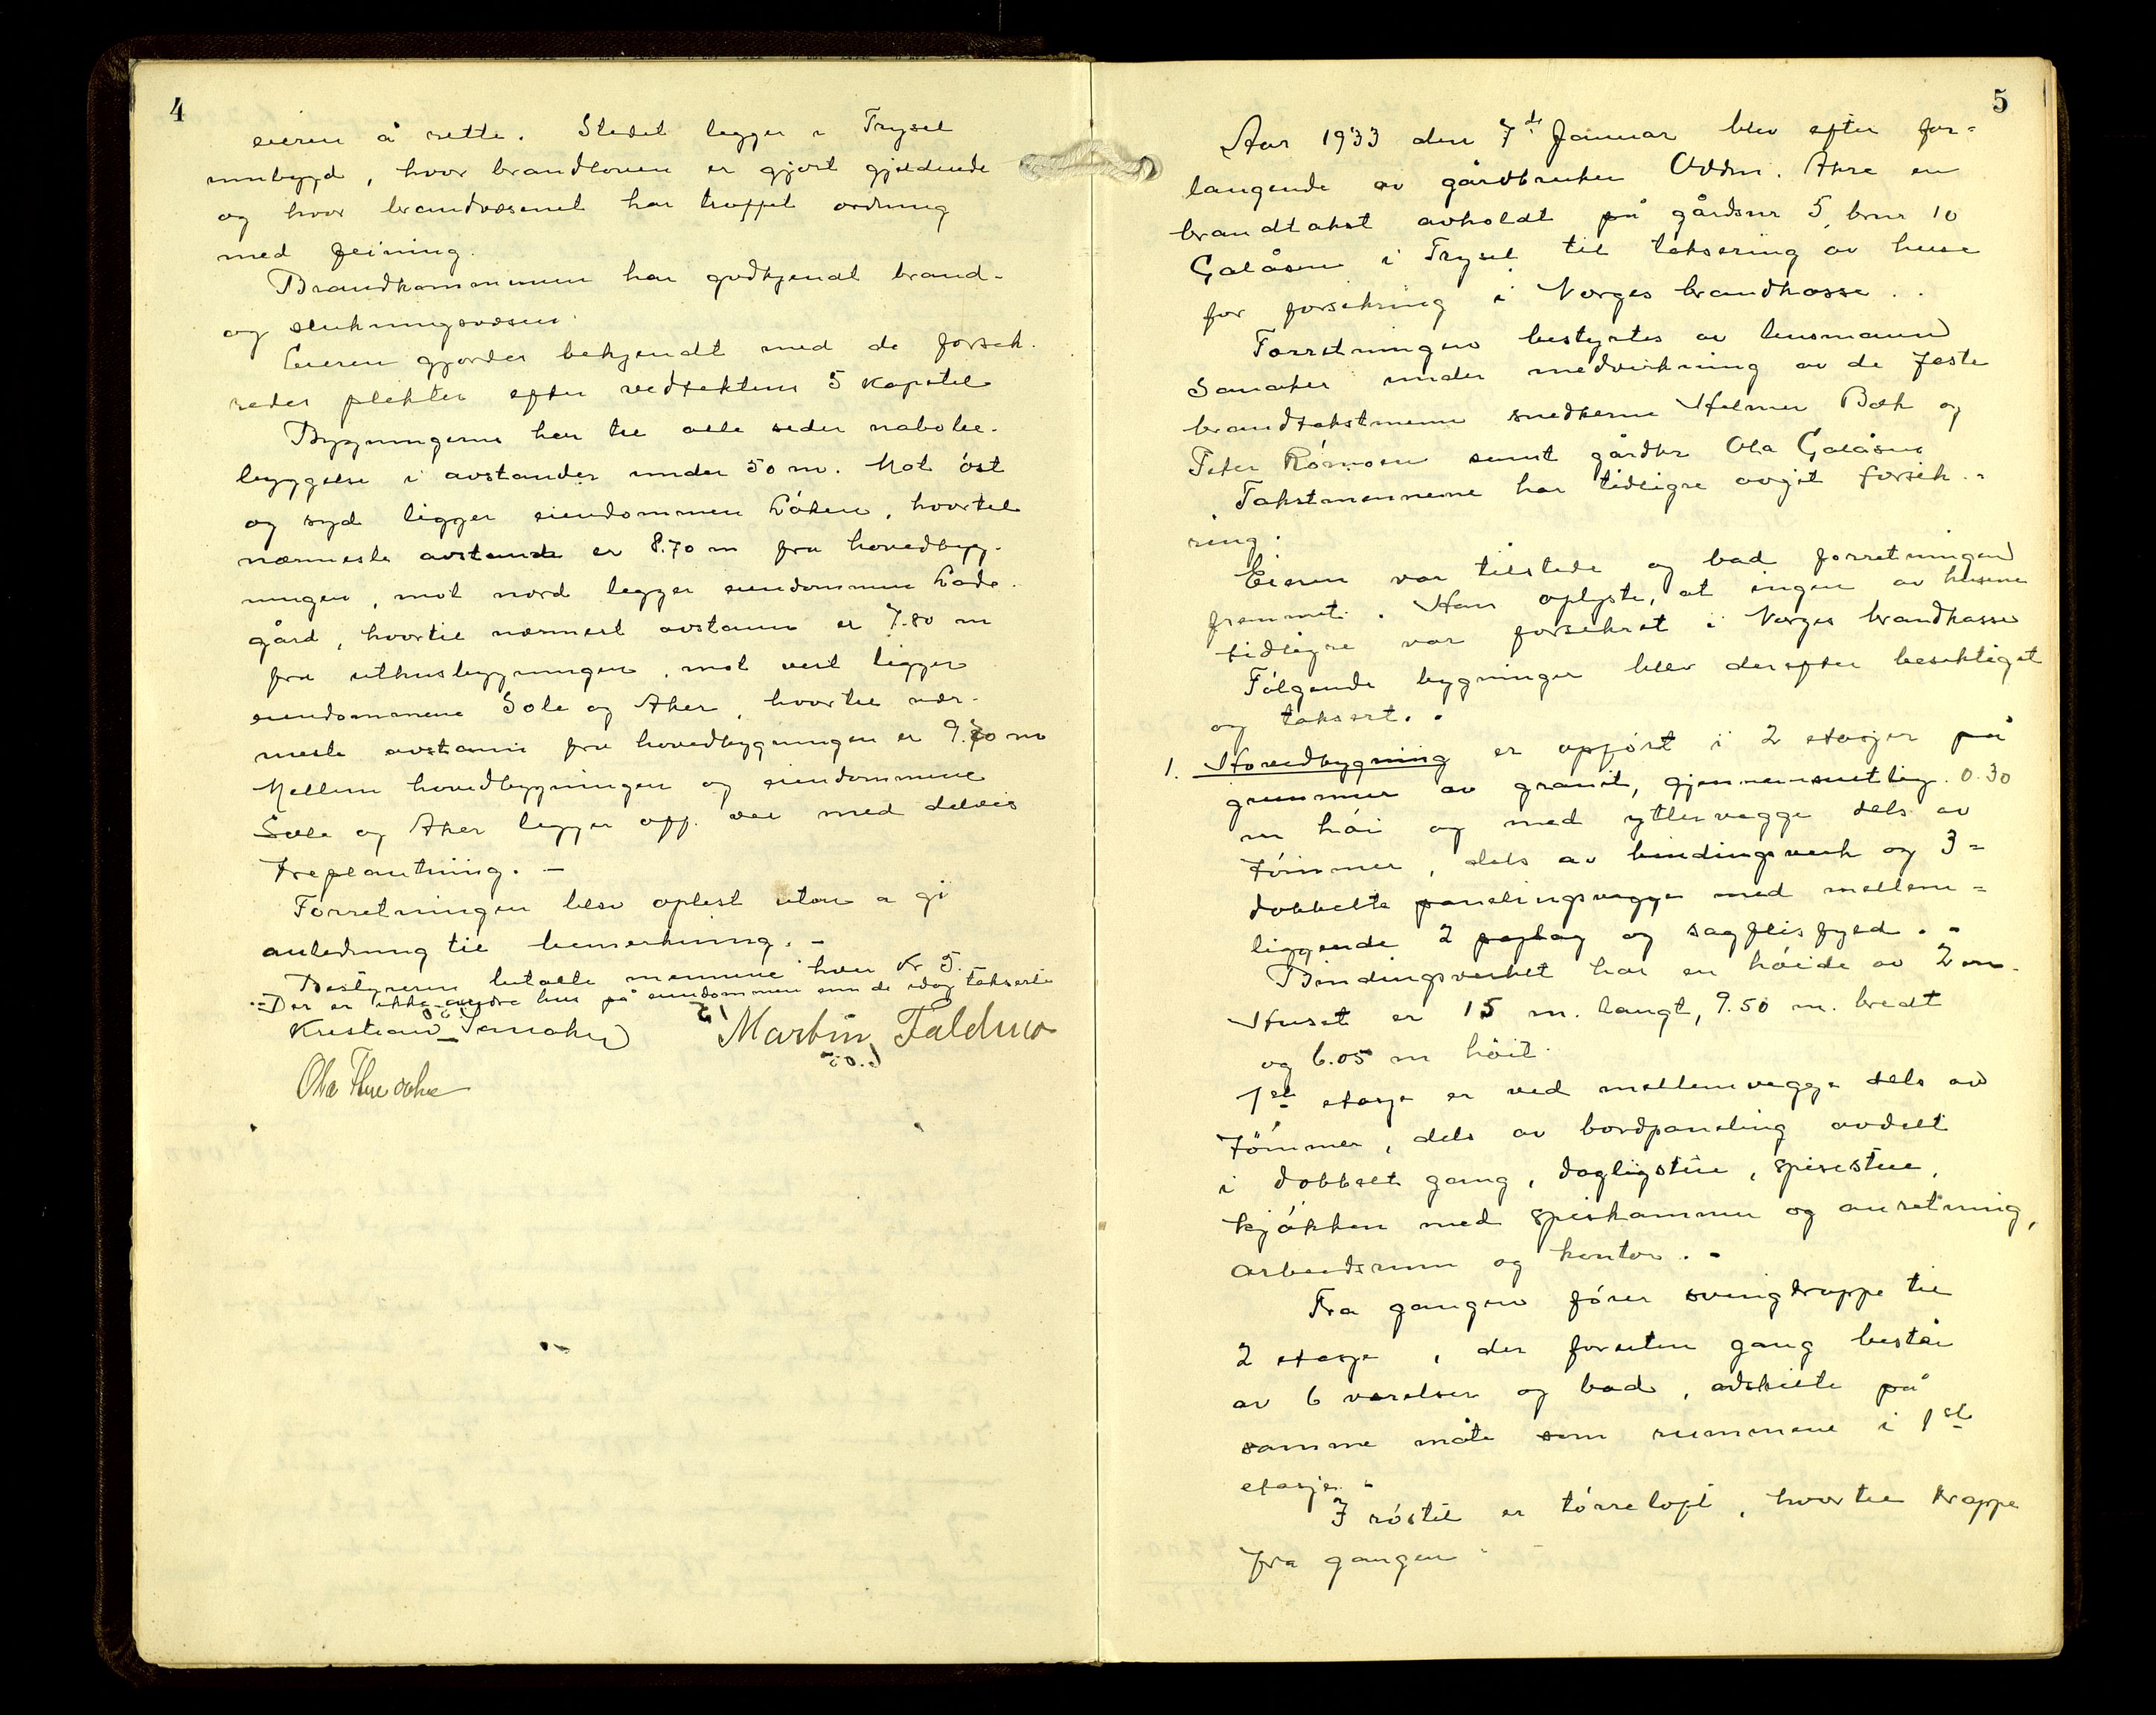 4
eieren å rette. Stedet ligger i Trysil
innbygd, hvor brandloven er gjort gjeldende
og hvor brandvæsenet har truffet ordning
med feining.
Brandkommunen har godkjendt brand-
og slukningsvæsen.
Eieren gjordes bekjendt med de forsik-
redes plikter efter vedtektene 5 kapitel
Bygningerne har til alle sider nabobe-
byggelse i avstander under 50 m. Mot øst
og syd ligger eiendommen Løken, hvortil
nærmeste avstand er 8.70 m fra hovedbyg-
ningen, mot nord ligger eiendommen Lade-
gård, hvortil nærmest avstann er 7.80 m
fra uthusbygningen, mot vest ligger
eiendommene Sole og Aker, hvortil nær-
meste avstann fra hovedbygningen er 9.70 m
Mellem hovedbygningen og eiendommene
Sole og Aker ligger off. vei med delvis
treplantning. -
Forretningen blev oplest uten a gi
anledning til bemerkning. -
Bestyreren betalte mennene hver Kr 5.
-: Der er ikke andre hus på eiendommen enn de idag takserte
Kristian Samaker
Martin Faldmo
Ola
5
Aar 1933 den 7de Januar blev efter for=
langende av gårdbruker Oddm. Akre en
brandtakst avholdt på gårdsnr 5, brnr 10
Galåsen i Trysil til taksering av huse
for forsikring i Norges brandkasse. .
Forretningen bestyrtes av lensmann
Samaker under medvirkning av de faste
brandtakstmenn snedkerne Helmer Bæk og
Peter Rømoen samt gårdbr Ola Galåsen
Takstmennene har tidligre avgit forsik-
ring.
Eieren var tilstede og bad forretningen
fremmet. Han oplyste, at ingen av husene
tidligre var forsikret i Norges brandkasse
Følgende bygninger blev derefter besiktiget
og taksert. .
1. Hovedbygning er opført i 2 etasjer på
grunnmur av granit, gjennemsnitlig 0.30
m høi og med yttervegge dels av
tømmer, dels av bindingsverk og 3=
dobbelte panelingsvegge med mellem=
liggende 2 paplag og sagflisfyld. .
Bindingsverket har en høide av 2 m.
Huset er 15 m. langt, 9.50 m. bredt
og 6.05 m høit.
1ste etasje er ved mellemvegge dels av
tømmer, dels av bordpaneling avdelt
i dobbelt gang, dagligstue, spisestue,
kjøkken med spiskammer og anretning,
arbeidsrum og kontor. .
Fra gangen fører svingtrappe til
2 etasje, der foruten gang består
av 6 værelser og bad, adskilte på
samme måte som rummene i 1ste
etasje. -
I røstet er tørreloft, hvortil trappe
fra gangen